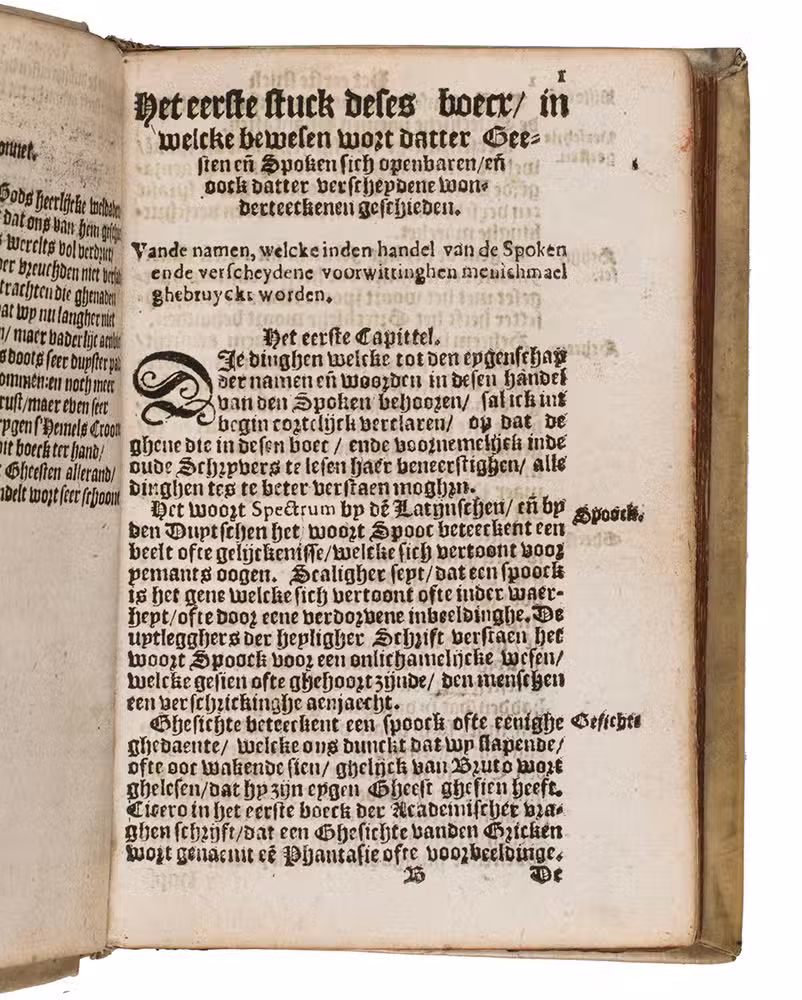 onnet.
Gods heerlijcke weldaden
dat ons van hem
werelts vol verdriet
er vreuchden niet
trachten die ghenaden
at wy nu langher niet
n/ maer vaderlijc
s doots seer duyster
ommen: en noch meer
rust/maer even seer
rygen s'Hemels Croon
dit boeck ter hand/
Gheesten allerand/
ndelt wort seer schoont
1
Het eerste stuck deses boecx/ in
welcke bewesen wort datter Gee-
sten eñ Spoken sich openbaren/eñ
oock datter verscheydene won-
derteeckenen geschieden.
Vande namen, welcke inden handel van de Spoken
ende verscheydene voorwittinghen menichmael
ghebruyckt worden.
Het eerste Capittel.
DJe dinghen welcke tot den eygenschap
der namen eñ woorden in desen handel
van den Spoken behooren/ sal ick int
begin cortelijck verclaren/ op dat de
ghene die in desen boec/ ende voornemelijck inde
oude Schryvers te lesen haer beneerstighen/ alle
dinghen tes te beter verstaen moghen.
Het woort Spectrum by dē Latynschen/ eñ by
den Duytschen het woort Spooc beteeckent een
beelt ofte gelijckenisse/welcke sich vertoont voor
yemants oogen. Scaligher seyt/dat een spoock
is het gene welcke sich vertoont ofte inder waer-
heyt/ofte door eene verdorvene inbeeldinghe. De
uytlegghers der heyligher Schrift verstaen het
woort Spoock voor een onlichamelijcke wesen/
welcke gesien ofte ghehoort zijnde/ den menschen
een verschrickinghe aenjaecht.
Spoock.
Ghesichte beteeckent een spoock ofte eenighe
ghedaente/ welcke ons dunckt dat wy slapende/
ofte ooc wakende sien/ ghelijck van Bruto wort
ghelesen/dat hy zijn eygen Gheest ghesien heeft.
Cicero in het eerste boeck der Academischer vra-
ghen schrijft/dat een Ghesichte vanden Gricken
wort genaemt eē Phantasie ofte voorbeeldinge.
Gesichte
B
De